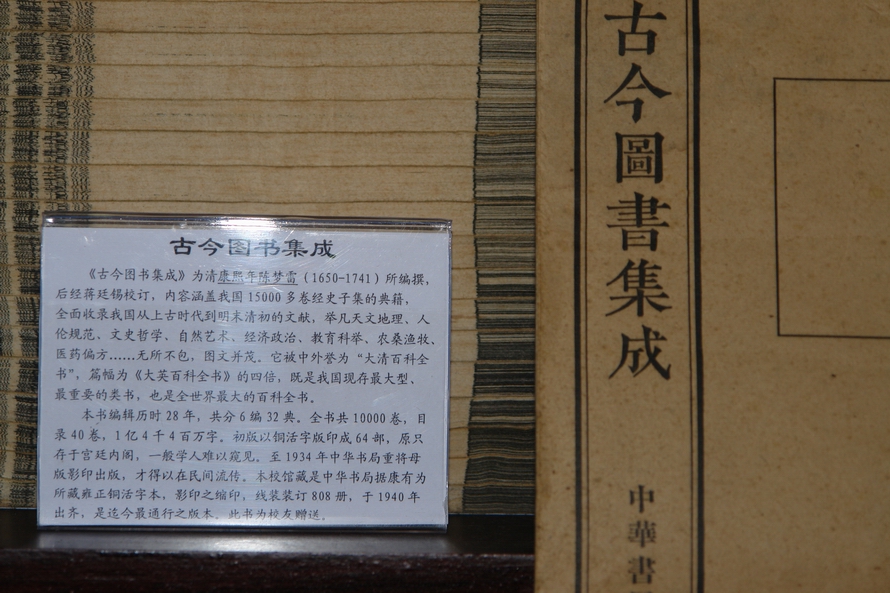 古今图书集成
《古今图书集成》为清康熙年陈梦雷（1650-1741）所编撰，
后经蒋廷锡校订，内容涵盖我国 15000 多卷经史子集的典籍，
全面收录我国从上古时代到明末清初的文献，举凡天文地理、人
伦规范、文史哲学、自然艺术、经济政治、教育科举、农桑渔牧、
医药偏方……无所不包，图文并茂。它被中外誉为“大清百科全
书”，篇幅为《大英百科全书》的四倍，既是我国现存最大型、
最重要的类书，也是全世界最大的百科全书。
本书编辑历时 28 年，共分 6 编 32 典。全书共 10000 卷，目
录 40 卷，1 亿 4 千 4 百万字。初版以铜活字版印成 64 部，原只
存于宫廷内阁，一般学人难以窥见。至 1934 年中华书局重将母
版影印出版，才得以在民间流传。本校馆藏是中华书局据康有为
所藏雍正铜活字本，影印之缩印，线装装订 808 册，于 1940 年
出齐，是迄今最通行之版本。此书为校友赠送。
古今圖書集成
中華書